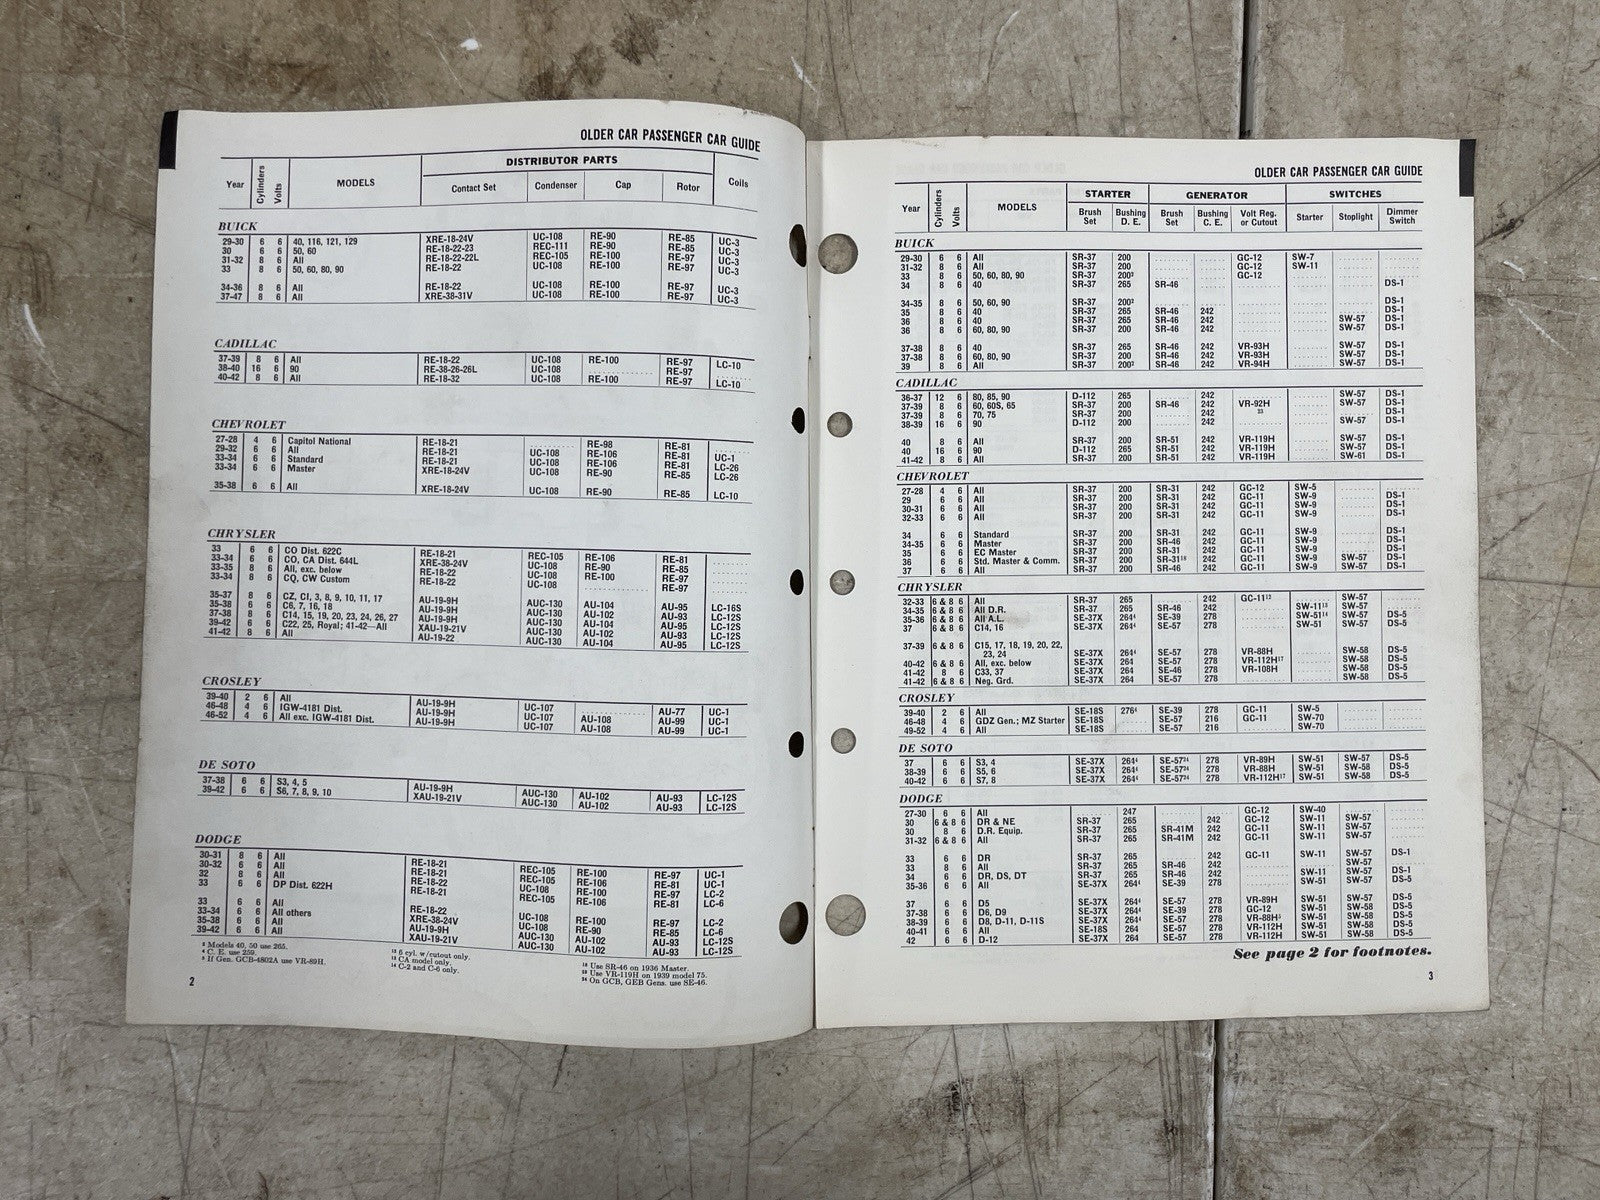 OLDER CAR PASSENGER CAR GUIDE
DISTRIBUTOR PARTS
Year Cylinders Volts MODELS Contact Set Condenser Cap Rotor Coils
BUICK
29-30 6 6 40, 116, 121, 129 XRE-18-24V UC-108 RE-90 RE-85 UC-3
30 6 6 50, 60 RE-18-22-23 REC-111 RE-90 RE-85 UC-3
31-32 8 6 All RE-18-22-22L REC-105 RE-100 RE-97 UC-3
33 8 6 50, 60, 80, 90 RE-18-22 UC-108 RE-100 RE-97 UC-3
34-36 8 6 All RE-18-22 UC-108 RE-100 RE-97 UC-3
37-47 8 6 All XRE-38-31V UC-108 RE-100 RE-97 UC-3
CADILLAC
37-39 8 6 All RE-18-22 UC-108 RE-100 RE-97 LC-10
38-40 16 6 90 RE-38-26-26L UC-108 RE-97
40-42 8 6 All RE-18-32 UC-108 RE-100 RE-97 LC-10
CHEVROLET
27-28 4 6 Capitol National RE-18-21 RE-98 RE-81
29-32 6 6 All RE-18-21 UC-108 RE-106 RE-81 UC-1
33-34 6 6 Standard RE-18-21 UC-108 RE-106 RE-81 LC-26
33-34 6 6 Master XRE-18-24V UC-108 RE-90 RE-85 LC-26
35-38 6 6 All XRE-18-24V UC-108 RE-90 RE-85 LC-10
CHRYSLER
33 6 6 CO Dist. 622C RE-18-21 REC-105 RE-106 RE-81
33-34 6 6 CO, CA Dist. 644L XRE-38-24V UC-108 RE-90 RE-85
33-35 8 6 All, exc. below RE-18-22 UC-108 RE-100 RE-97
33-34 8 6 CQ, CW Custom RE-18-22 UC-108 RE-97
35-37 8 6 CZ, C1, 3, 8, 9, 10, 11, 17 AU-19-9H AUC-130 AU-104 AU-95 LC-16S
35-38 6 6 C6, 7, 16, 18 AU-19-9H AUC-130 AU-102 AU-93 LC-12S
37-38 8 6 C14, 15, 19, 20, 23, 24, 26, 27 AU-19-9H AUC-130 AU-104 AU-95 LC-12S
39-42 6 6 C22, 25, Royal; 41-42—All XAU-19-21V AUC-130 AU-102 AU-93 LC-12S
41-42 8 6 All AU-19-22 AUC-130 AU-104 AU-95 LC-12S
CROSLEY
39-40 2 6 All AU-19-9H UC-107 AU-77 UC-1
46-48 4 6 IGW-4181 Dist. AU-19-9H UC-107 AU-108 AU-99 UC-1
46-52 4 6 All exc. IGW-4181 Dist. AU-19-9H UC-107 AU-108 AU-99 UC-1
DE SOTO
37-38 6 6 S3, 4, 5 AU-19-9H AUC-130 AU-102 AU-93 LC-12S
39-42 6 6 S6, 7, 8, 9, 10 XAU-19-21V AUC-130 AU-102 AU-93 LC-12S
DODGE
30-31 8 6 All RE-18-21 REC-105 RE-100 RE-97 UC-1
30-32 6 6 All RE-18-21 REC-105 RE-106 RE-81 UC-1
32 8 6 All RE-18-22 UC-108 RE-100 RE-97 LC-2
33 6 6 DP Dist. 622H RE-18-21 REC-105 RE-106 RE-81 LC-6
33 8 6 All RE-18-22 UC-108 RE-100 RE-97 LC-2
33-34 6 6 All others XRE-38-24V UC-108 RE-90 RE-85 LC-6
35-38 6 6 All AU-19-9H AUC-130 AU-102 AU-93 LC-12S
39-42 6 6 All XAU-19-21V AUC-130 AU-102 AU-93 LC-12S
Models 40, 50 use 265.
C. E. use 259.
If Gen. GCB-4802A use VR-89H.
6 cyl. w/cutout only.
CA model only.
C-2 and C-6 only.
Use SR-46 on 1936 Master.
Use VR-119H on 1939 model 75.
On GCB, GEB Gens. use SE-46.
2
OLDER CAR PASSENGER CAR GUIDE
STARTER GENERATOR SWITCHES
Year Cylinders Volts MODELS Brush Set Bushing D. E. Brush Set Bushing C. E. Volt Reg. or Cutout Starter Stoplight Dimmer Switch
BUICK
29-30 6 6 All SR-37 200 GC-12 SW-7
31-32 8 6 All SR-37 200 GC-12 SW-11
33 8 6 50, 60, 80, 90 SR-37 200³ GC-12
34 8 6 40 SR-37 265 SR-46 DS-1
34-35 8 6 50, 60, 90 SR-37 200³ DS-1
35 8 6 40 SR-37 265 SR-46 242 DS-1
36 8 6 40 SR-37 265 SR-46 242 SW-57 DS-1
36 8 6 60, 80, 90 SR-37 200 SR-46 242 SW-57 DS-1
37-38 8 6 40 SR-37 265 SR-46 242 VR-93H SW-57 DS-1
37-38 8 6 60, 80, 90 SR-37 200 SR-46 242 VR-93H SW-57 DS-1
39 8 6 All SR-37 200³ SR-46 242 VR-94H SW-57 DS-1
CADILLAC
36-37 12 6 80, 85, 90 D-112 265 242 SW-57 DS-1
37-39 8 6 60, 60S, 65 SR-37 200 SR-46 242 VR-92H SW-57 DS-1
37-39 8 6 70, 75 SR-37 200 242 ²³ DS-1
38-39 16 6 90 D-112 200 242 SW-57 DS-1
40 8 6 All SR-37 200 SR-51 242 VR-119H SW-57 DS-1
40 16 6 90 D-112 265 SR-51 242 VR-119H SW-57 DS-1
41-42 8 6 All SR-37 200 SR-51 242 VR-119H SW-61 DS-1
CHEVROLET
27-28 4 6 All SR-37 200 SR-31 242 GC-12 SW-5
29 6 6 All SR-37 200 SR-31 242 GC-11 SW-9 DS-1
30-31 6 6 All SR-37 200 SR-31 242 GC-11 SW-9 DS-1
32-33 6 6 All SR-37 200 SR-31 242 GC-11 SW-9 DS-1
34 6 6 Standard SR-37 200 SR-31 242 GC-11 SW-9 DS-1
34-35 6 6 Master SR-37 200 SR-46 242 GC-11 SW-9 DS-1
35 6 6 EC Master SR-37 200 SR-31 242 GC-11 SW-9 DS-1
36 6 6 Std. Master & Comm. SR-37 200 SR-31¹⁸ 242 GC-11 SW-9 SW-57 DS-1
37 6 6 All SR-37 200 SR-46 242 GC-11 SW-9 SW-57 DS-1
CHRYSLER
32-33 6 & 8 6 All SR-37 265 242 GC-11¹² SW-57
34-35 6 & 8 6 All D.R. SR-37 265 SR-46 242 SW-11¹³ SW-57
35-36 6 & 8 6 All A.L. SE-37X 264⁴ SE-39 278 SW-51¹⁴ SW-57 DS-5
37 6 & 8 6 C14, 16 SE-37X 264⁴ SE-57 278 SW-51 SW-57 DS-5
37-39 6 & 8 6 C15, 17, 18, 19, 20, 22,
23, 24 SE-37X 264⁴ SE-57 278 VR-88H SW-58 DS-5
40-42 6 & 8 6 All, exc. below SE-37X 264 SE-57 278 VR-112H¹⁷ SW-58 DS-5
41-42 8 6 C33, 37 SE-37X 264 SE-46 278 VR-108H SW-58 DS-5
41-42 6 & 8 6 Neg. Grd. SE-37X 264 SE-57 278 SW-58 DS-5
CROSLEY
39-40 2 6 All SE-18S 276⁴ SE-39 278 GC-11 SW-5
46-48 4 6 GDZ Gen.; MZ Starter SE-18S SE-57 216 GC-11 SW-70
49-52 4 6 All SE-18S SE-57 216 SW-70
DE SOTO
37 6 6 S3, 4 SE-37X 264⁴ SE-57²⁴ 278 VR-89H SW-51 SW-57 DS-5
38-39 6 6 S5, 6 SE-37X 264⁴ SE-57²⁴ 278 VR-88H SW-51 SW-58 DS-5
40-42 6 6 S7, 8 SE-37X 264⁴ SE-57²⁴ 278 VR-112H¹⁷ SW-51 SW-58 DS-5
DODGE
27-30 6 6 All 247 GC-12 SW-40
30 6 & 8 6 DR & NE SR-37 265 242 GC-12 SW-11 SW-57
30 8 6 D.R. Equip. SR-37 265 SR-41M 242 GC-11 SW-11 SW-57
31-32 6 & 8 6 All SR-37 265 SR-41M 242 GC-11 SW-11 SW-57
33 6 6 DR SR-37 265 242 GC-11 SW-11 SW-57 DS-1
33 8 6 All SR-37 265 SR-46 242 SW-57
34 6 6 DR, DS, DT SR-37 265 SR-46 242 SW-11 SW-57 DS-1
35-36 6 6 All SE-37X 264⁴ SE-39 278 SW-51 SW-57 DS-5
37 6 6 D5 SE-37X 264⁴ SE-57 278 VR-89H SW-51 SW-57 DS-5
37-38 6 6 D6, D9 SE-37X 264⁴ SE-39 278 GC-12 SW-51 SW-58 DS-5
38-39 6 6 D8, D-11, D-11S SE-37X 264⁴ SE-57 278 VR-88H⁵ SW-51 SW-58 DS-5
40-41 6 6 All SE-18S 264 SE-57 278 VR-112H SW-51 SW-58 DS-5
42 6 6 D-12 SE-37X 264 SE-57 278 VR-112H SW-51 SW-58 DS-5
See page 2 for footnotes.
3